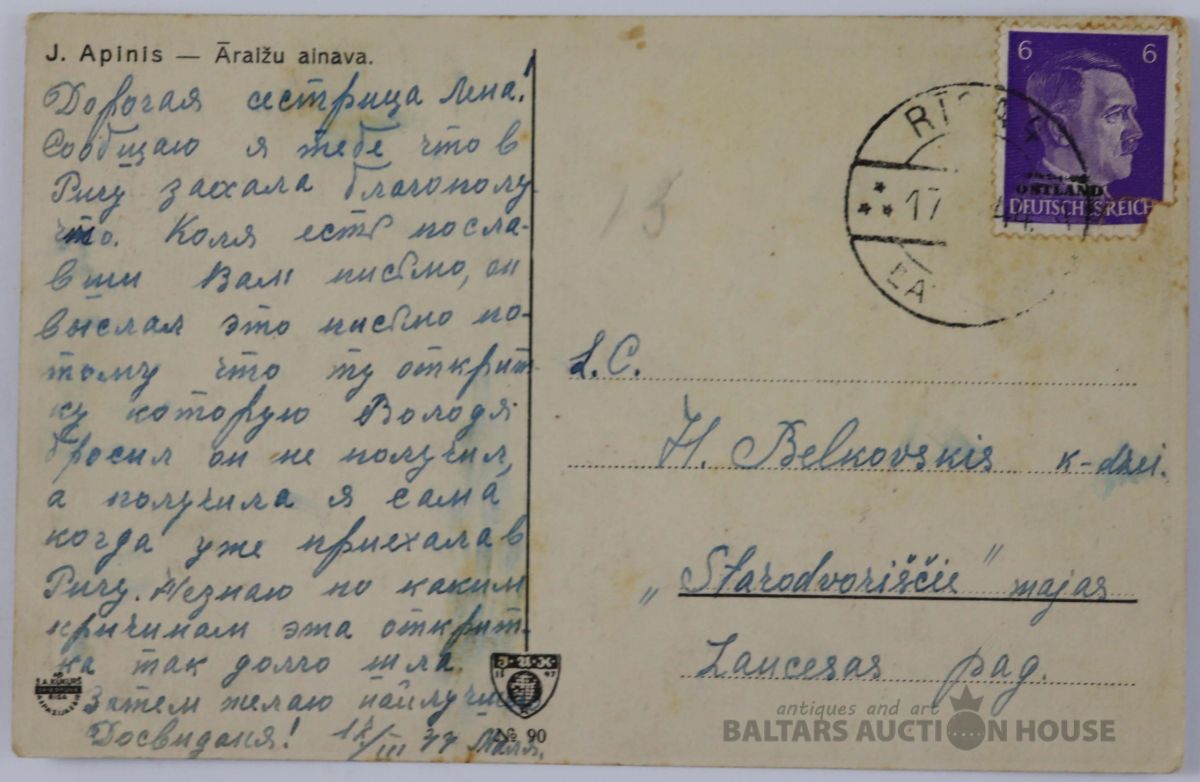 J. Apinis — Āraižu ainava.
Дорогая сестрица Лена!
Сообщаю я тебе что в
Ригу заехала благополу-
что. Коля есть посла-
вши Вам письмо, он
выслал это письмо по-
тому что ту открыт-
ку которую Володя
бросил он не получил,
а получила я сама
когда уже приехала в
Ригу. Незнаю по каким
причинам эта открыт-
ка так долго шла.
Затем желаю
Досвиданя! 17/III 44
J-R-K
18 97
№ 90
6 6
OSTLAND
DEUTSCHES REICH
17
L.C.
H. Belkovskis k-dzei.
„Starodvoriščie” majas
Laucesas pag.
antiques and art
BALTARS AUCTION HOUSE